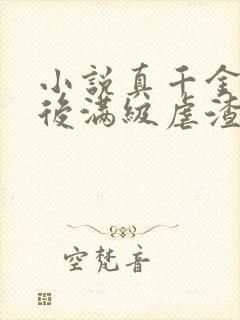 小說真千金
後滿級虐渣
空梵音